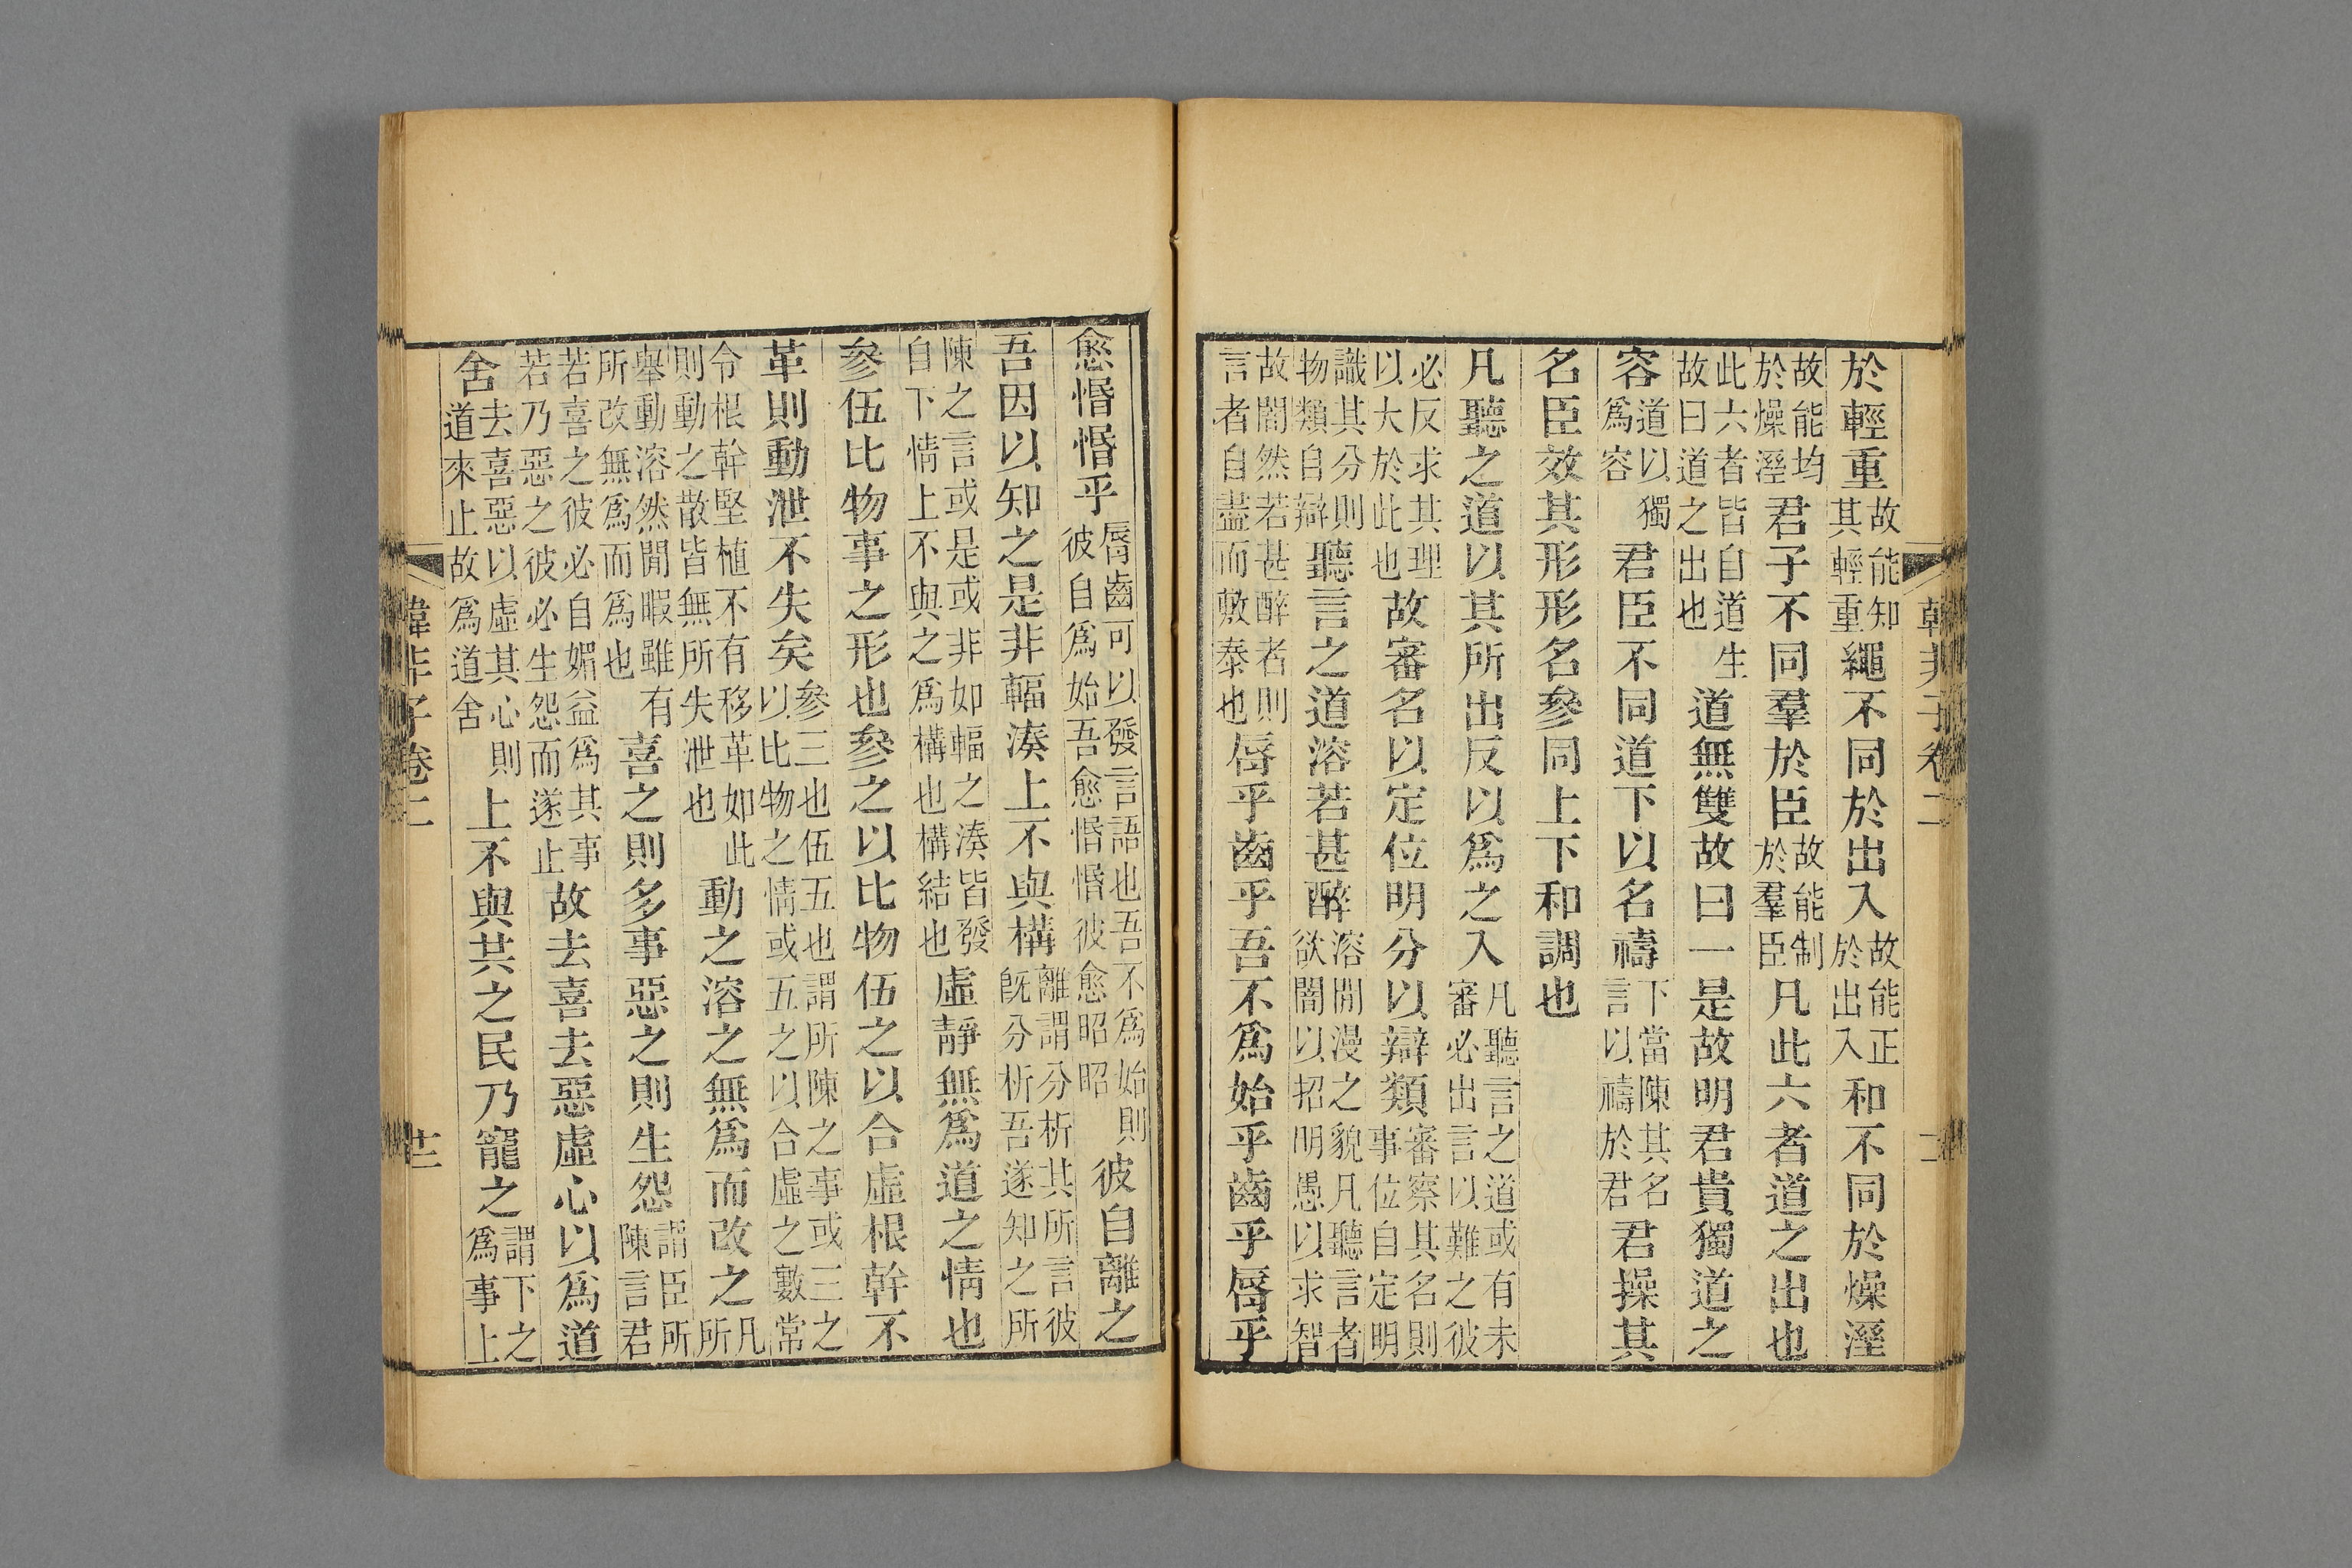 韓非子卷二
於輕重故能知其輕重繩不同於出入故能正於出入和不同於燥溼
故能均於燥溼君子不同羣於臣故能制於羣臣凡此六者道之出也
此六者皆自道生故曰道之出也道無雙故曰一是故明君貴獨道之
容道以獨爲容君臣不同道下以名禱下當陳其名言以禱於君君操其
名臣效其形形名參同上下和調也
凡聽之道以其所出反以爲之入凡聽言之道或有未審必出言以難之彼
必反求其理以大於此也故審名以定位明分以辯類審察其名則事位自定明
識其分則物類自辯聽言之道溶若甚醉溶閒漫之貌凡聽言者欲闇以招明愚以求智
故闇然若甚醉者則言者自盡而敷泰也脣乎齒乎吾不爲始乎齒乎脣乎
愈惛惛乎脣齒可以發言語也吾不爲始則彼自爲始吾愈惛惛彼愈昭昭彼自離之
吾因以知之是非輻湊上不與構離謂分析其所言彼旣分析吾遂知之所
陳之言或是或非如輻之湊皆發自下情上不與之爲構也構結也虛靜無爲道之情也
參伍比物事之形也參之以比物伍之以合虛根幹不
革則動泄不失矣參三也伍五也謂所陳之事或三之以比物之情或五之以合虛之數常
令根幹堅植不有移革如此則動之散皆無所失泄也動之溶之無爲而改之凡所
舉動溶然閒暇雖有所改無爲而爲也喜之則多事惡之則生怨謂臣所陳言君
若喜之彼必自媚益爲其事若乃惡之彼必生怨而遂止故去喜去惡虛心以爲道
舍去喜惡以虛其心則道來止故爲道舍上不與共之民乃寵之謂下之爲事上
韓非子卷二